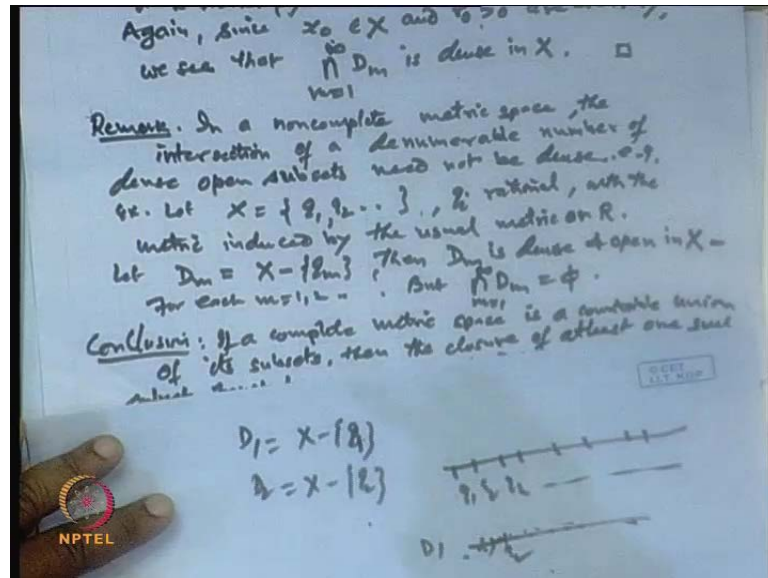 Again, since x₀ ∈ X and r₀ > 0
we see that ∞∩m=1 Dm is dense in X. □
Remark. In a noncomplete metric space, the
intersection of a denumerable number of
dense open subsets need not be dense. e.g.
Ex. Let X = {q₁, q₂ ..}, qᵢ rational, with the
metric induced by the usual metric on R.
Let Dm = X - {qm}. Then Dm is dense & open in X -
for each m = 1, 2 - . But ∞∩m=1 Dm = φ.
Conclusion: If a complete metric space is a countable union
of its subsets, then the closure of atleast one such
subset
D₁ = X - {q₁}
= X - {q₂}
q₁ q₂
D₁
NPTEL